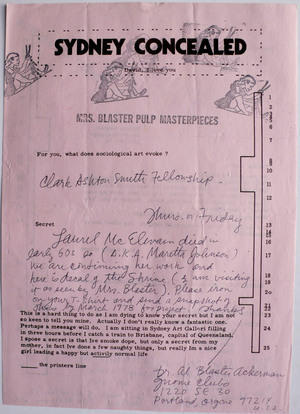 SYDNEY CONCEALED
David, I love you
MRS. BLASTER PULP MASTERPIECES
For you, what does sociological art evoke ?
Clark Ashton Smith Fellowship
Thurs. or Friday
Secret
Laurel Mc Elevain died in
early 60s so (A.K.A. Maretta Johnson)
We are continuing her work and
here is decal of the Shrine (I am visiting
or as seen by Mrs. Blaster). Please iron
on your T. Shirt and send a snapshot of
This is hard thing to do as I am dying to know your secret I am not
so keen to tell you mine. Actually I don't really know a fantastic one.
Perhaps a message will do. I am sitting in Sydney Art Galleri filling
in three hours before I catch a train to Brisbane, capitol of Queensland.
I spose a secret is that Ive smoke dope, but only a secret from my
mother, in fact Ive done a few naughty things, but really Im a nice
girl leading a happy but activly normal life
the printers line
Dr. Al Blaster Ackerman
Gnome Club
1220 SE 30
Portland, Oregon 97214
U.S.
1
2
3
10
11
12
13
14
15
16
17
18
19
20
21
25